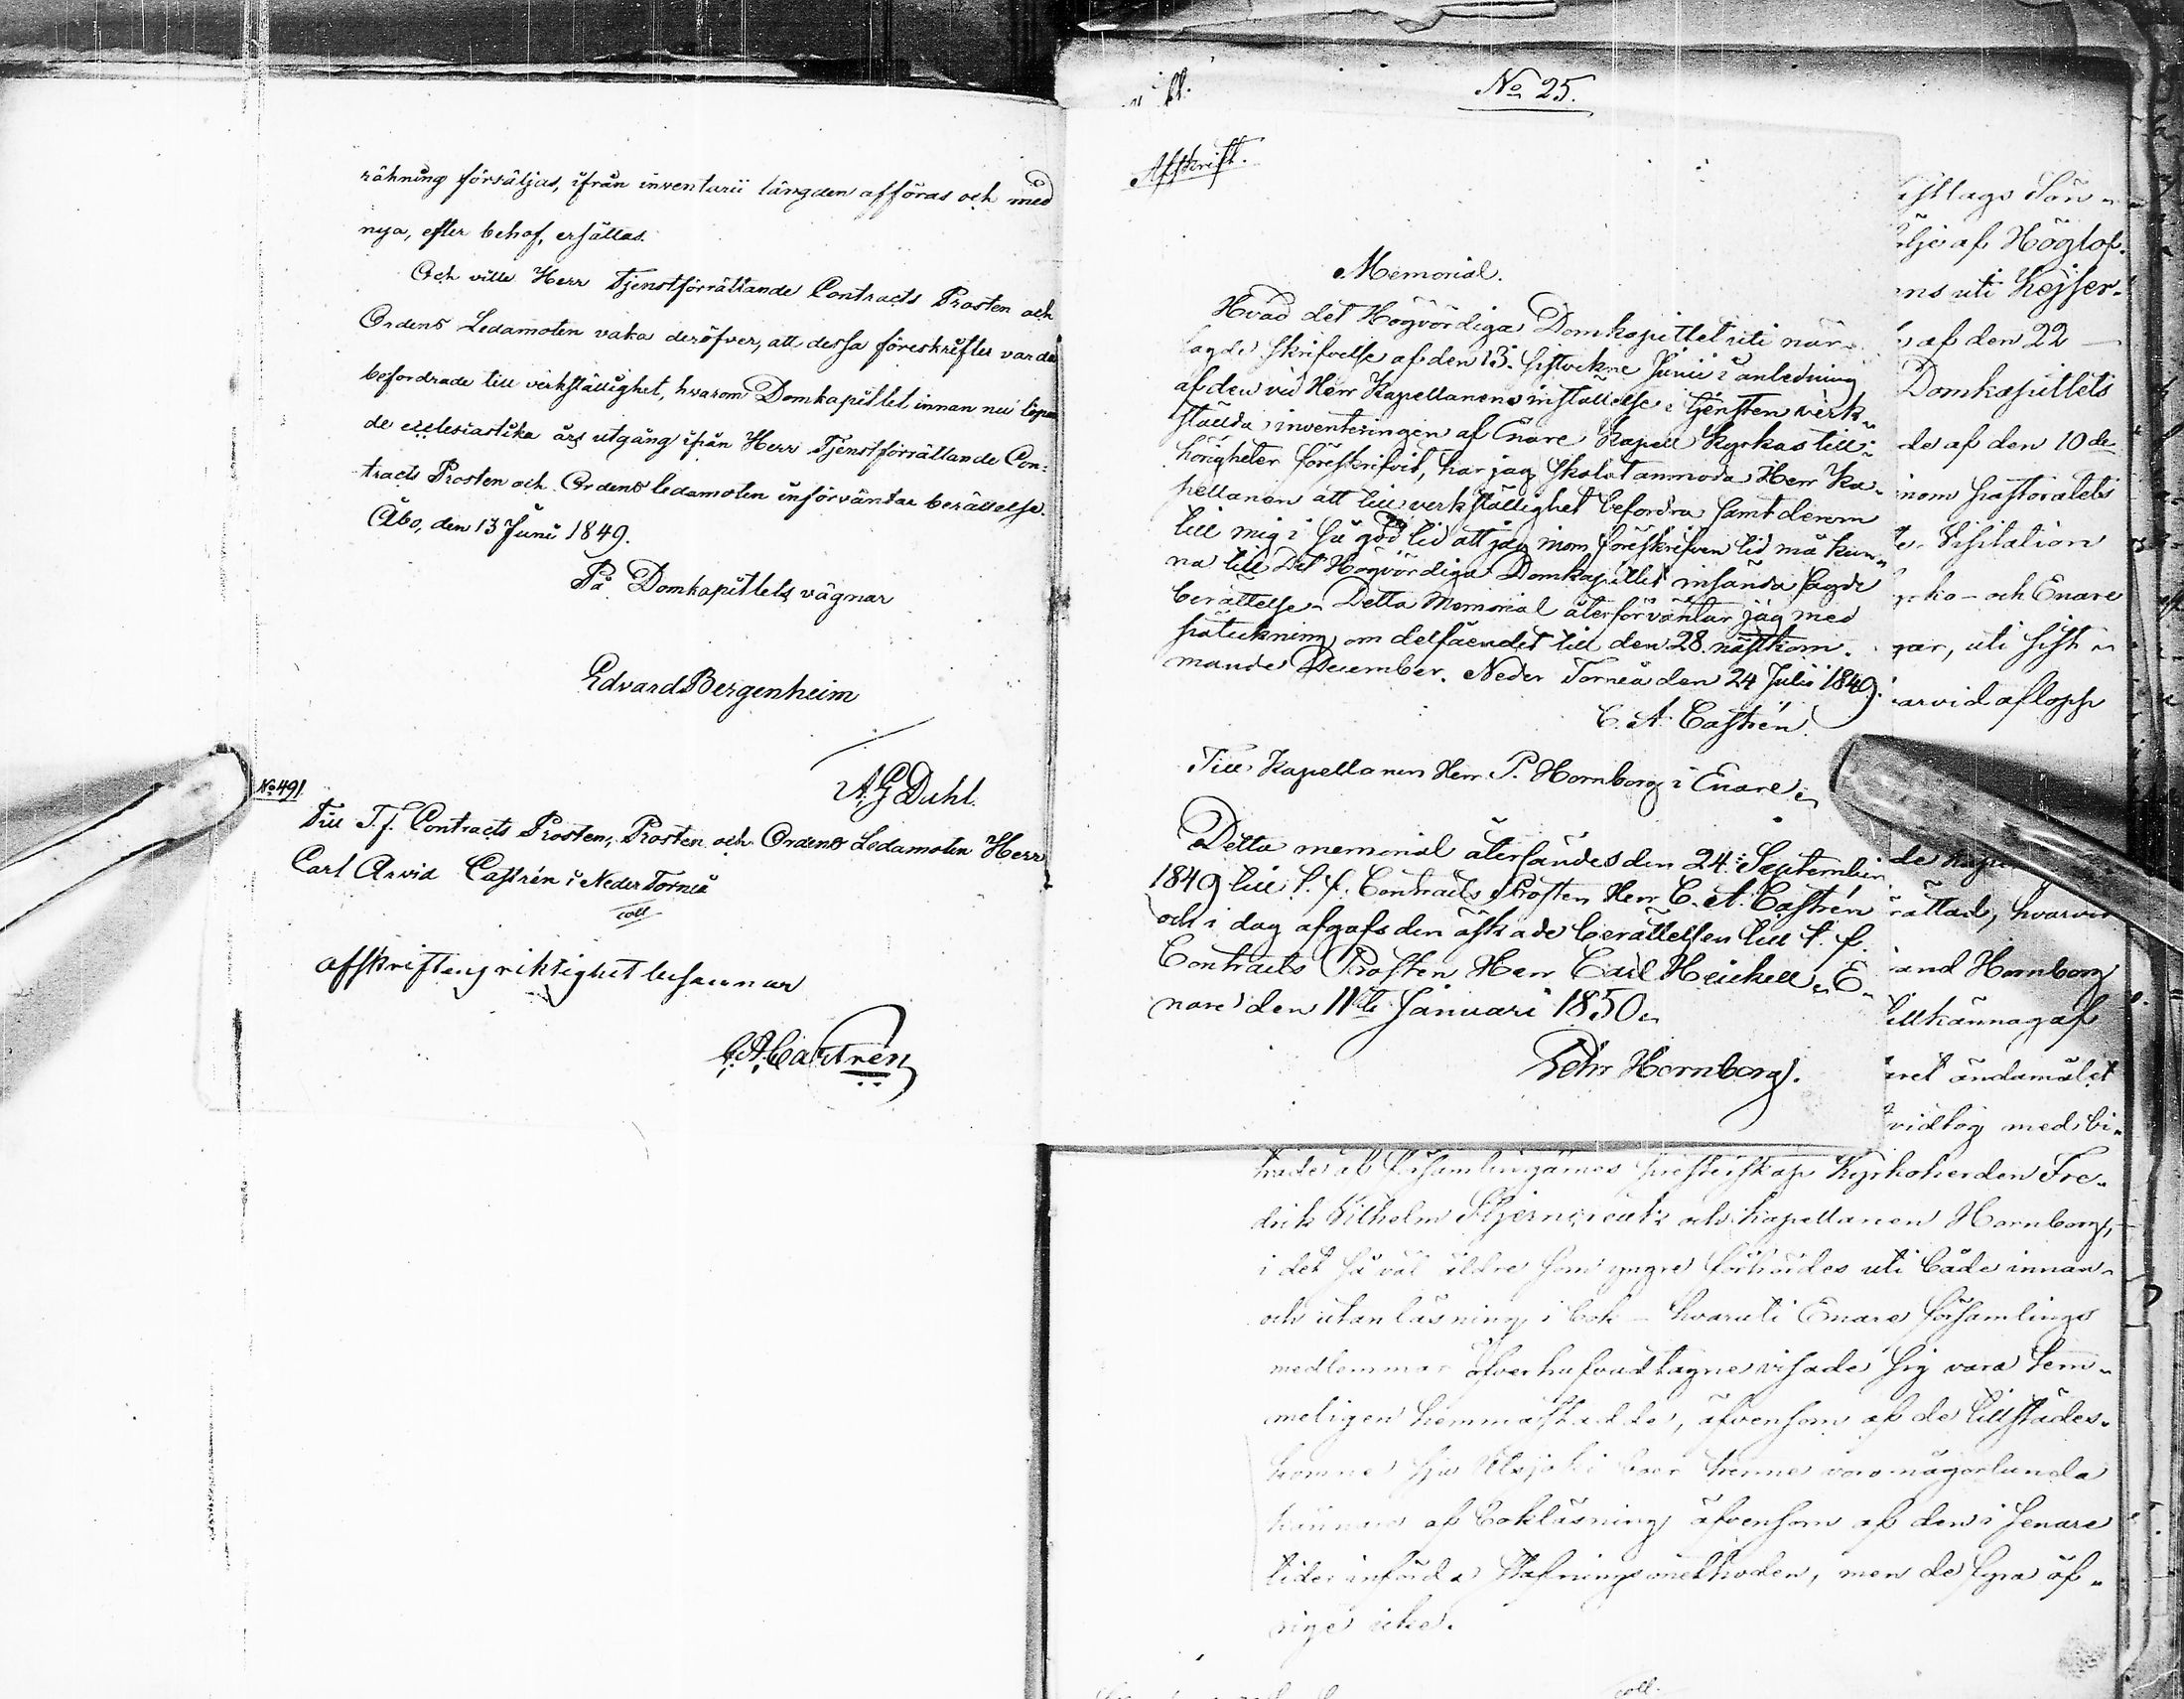 räkning försäljas, ifrån inventarii längden afföras och med
nya, efter behof, ersättas.
Och ville Herr Tjenstförrättande Contracts Prosten och
Ordens Ledamoten vaka deröfver, att dessa föreskrifter varda
befordrade till verkställighet, hvarom Domkapitlet innan nu löpan
de ecclesiastika års utgång ifrån Herr Tjenstförrättande Con:
tracts Prosten och Ordens ledamoten införväntar berättelse.
Åbo, den 13 Juni 1849.
På Domkapitlets vägnar
Edvard Bergenheim
A G Dahl.
No 491.
Till T. f. Contracts Prosten, Prosten och Ordens Ledamoten Herr
Carl Arvid Castrén i Neder Torneå
coll.
afskriftens riktighet besannar
C A Castrén
No 25.
Afskrift.
Memorial.
Hvad det Högvördiga Domkapitlet uti när-
lagde skrifvelse af den 13. sistvekne Junii i anledning
af den vid Herr Kapellanens installelse i tjensten verk-
stälda inventeringen af Enare Kapell Kyrkas till-
hörigheter föreskrifvit, har jag skolat anmoda Herr Ka-
pellanen att till verkställighet befordra samt derom
till mig i så god tid att jag inom föreskrifven tid må kun-
na till Det Högvördiga Domkapitlet insända sagde
berättelse. Detta Memorial återförväntar jag med
påteckning om delfåendet till den 28. nästkom-
mande December. Neder Torneå den 24 Julii 1849.
C. A. Castrén.
Till Kapellanen Herr P. Hornborg i Enare.
Detta memorial återsändes den 24: September
1849 till t. f. Contracts Prosten Herr C. A. Castrén
och i dag afgafs den äskade berättelsen till t. f.
Contracts Prosten Herr Carl Heickell. E-
nare den 11te Januari 1850.
Pehr Hornborg.
af Höglof.
uti Kejser-
af den 22
Domkapitlets
af den 10de
inom pastoratets
Visitation
och Enare
uti sist
arvid aflopp
de
rättad, hvarvid
and Hornborg
tillkännagaf
ändamålet
vidtog med bi-
träde af församlingarnes presterskap Kyrkoherden Fre-
drik Wilhelm Stjerncreutz och kapellanen Hornborg,
i det så väl äldre som yngre förhördes uti både innan-
och utanläsning i bok - hvaruti Enare församlings
medlemmar öfverhufvudtagne visade sig vara tem-
meligen hemmastadde, äfvensom af de tillstädes-
komne sju Utsjoki boer trenne voro någorlunda
kunnige af bokläsning äfvensom af den i senare
tider införda stafningsmethoden, men de fyra öf-
rige icke.
coll.